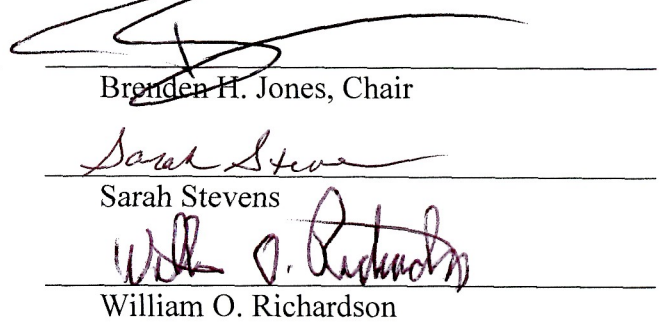 Brenden H. Jones, Chair
Sarah Stevens
Sarah Stevens
William O. Richardson
William O. Richardson